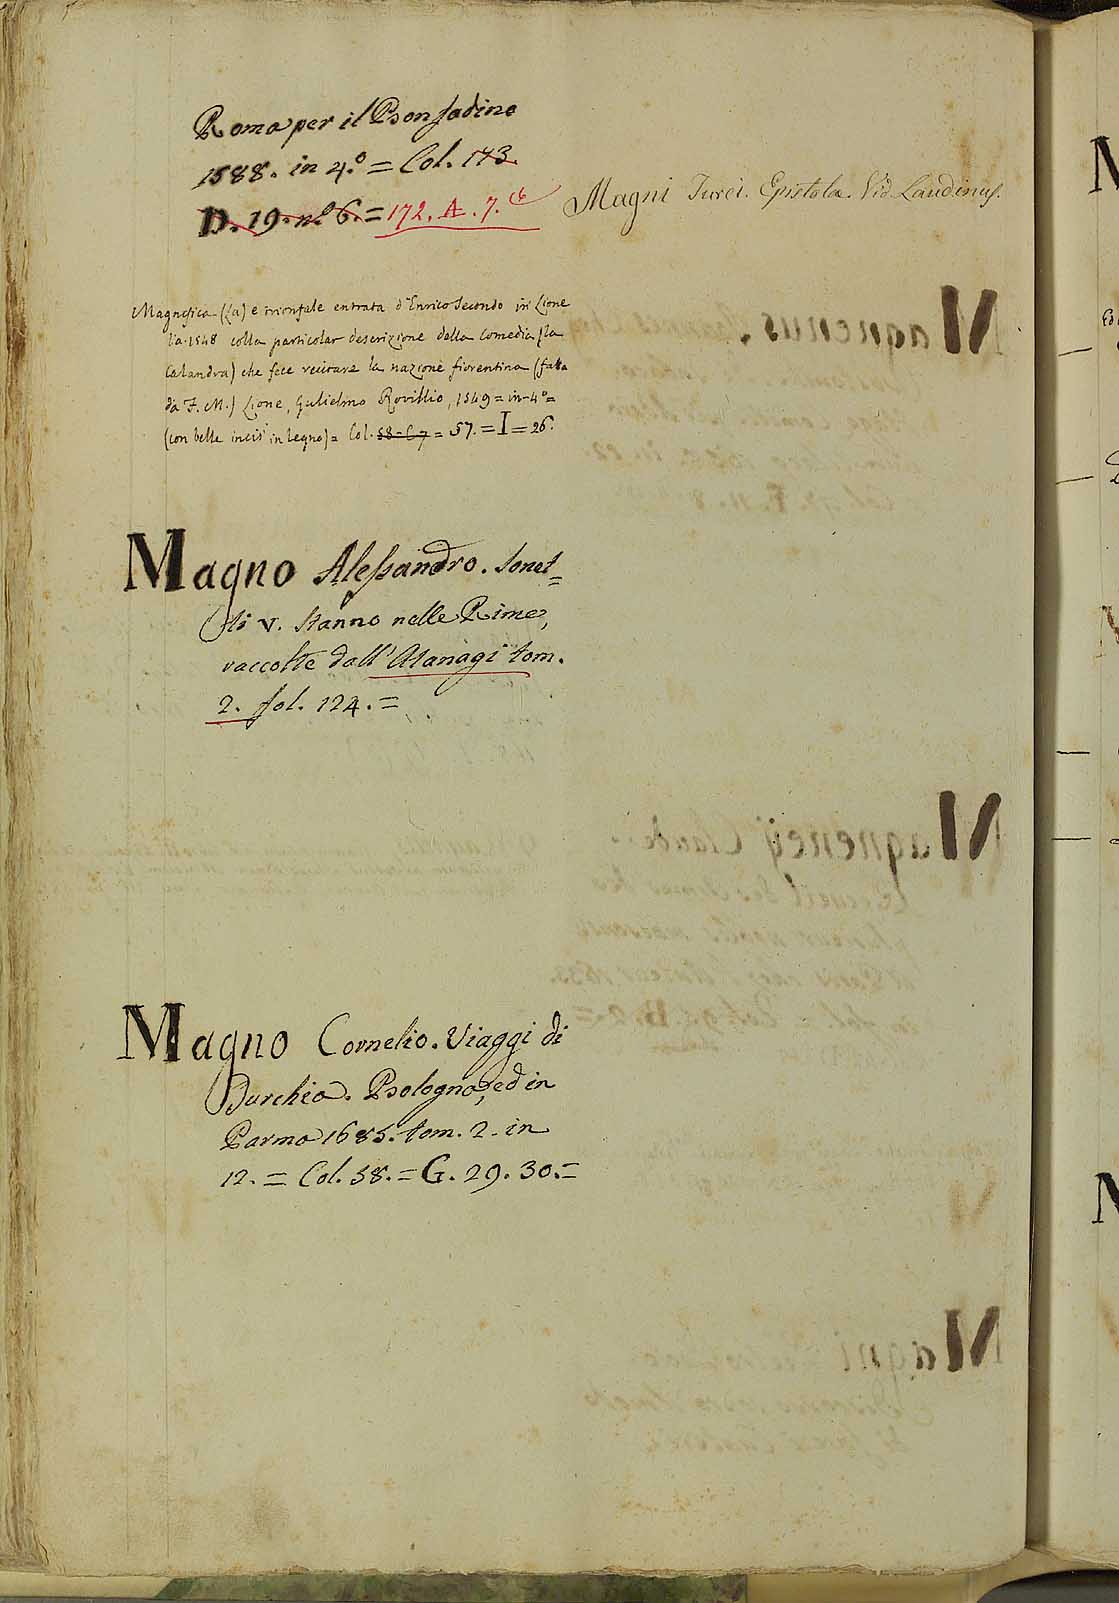 Roma per il Bonfadino
1588. in 4.º = Col. 173.
D. 19. nº 6. = 172. A. 7.
Magni Turci. Epistolæ. Vid Laudinus.
Magnifica (La) e trionfale entrata d'Enrico Secondo in Lione
l'a. 1548 colla particolar descrizione della Comedia (la
Calandra) che fece recitare la nazione fiorentina (fatta
da F. M.) Lione, Gulielmo Rovillio, 1549 = in-4º =
(con belle incisⁱ in legno) = Col. 58-C7 = 57. = I = 26.
Magno Alessandro. Sonet=
ti V. Stanno nelle Rime,
raccolte dall'Atanagi tom.
2. fol. 124. =
Magno Cornelio. Viaggi di
Turchia. Bologna, ed in
Parma 1685. tom. 2. in
12. = Col. 58. = G. 29. 30. =